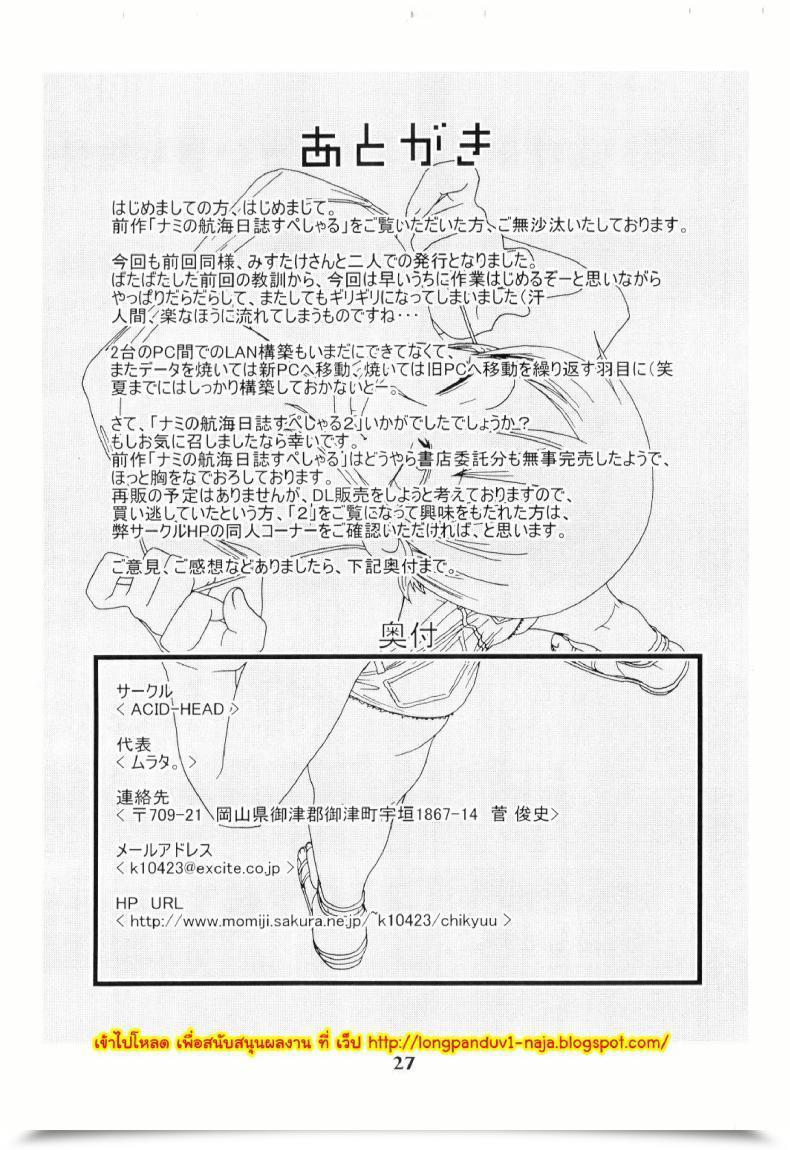 あとがき
はじめましての方、はじめまして。
前作「ナミの航海日誌すぺしゃる」をご覧いただいた方、ご無沙汰いたしております。
今回も前回同様、みすたけさんと二人での発行となりました。
ばたばたした前回の教訓から、今回は早いうちに作業はじめるぞーと思いながら
やっぱりだらだらして、またしてもギリギリになってしまいました（汗
人間、楽なほうに流れてしまうものですね・・・
2台のPC間でのLAN構築もいまだにできてなくて、
またデータを焼いては新PCへ移動、焼いては旧PCへ移動を繰り返す羽目に（笑
夏までにはしっかり構築しておかないとー。
さて、「ナミの航海日誌すぺしゃる２」いかがでしたでしょうか？
もしお気に召しましたなら幸いです。
前作「ナミの航海日誌すぺしゃる」はどうやら書店委託分も無事完売したようで、
ほっと胸をなでおろしております。
再販の予定はありませんが、DL販売をしようと考えておりますので、
買い逃していたという方、「２」をご覧になって興味をもたれた方は、
弊サークルHPの同人コーナーをご確認いただければ、と思います。
ご意見、ご感想などありましたら、下記奥付まで。
奥付
サークル
< ACID-HEAD >
代表
< ムラタ。 >
連絡先
< 〒709-21 岡山県御津郡御津町宇垣1867-14 菅 俊史>
メールアドレス
< k10423@excite.co.jp >
HP URL
< http://www.momiji.sakura.ne.jp/~k10423/chikyuu >
เข้าไปโหลด เพื่อสนับสนุนผลงาน ที่ เว็ป http://longpanduv1-naja.blogspot.com/
27